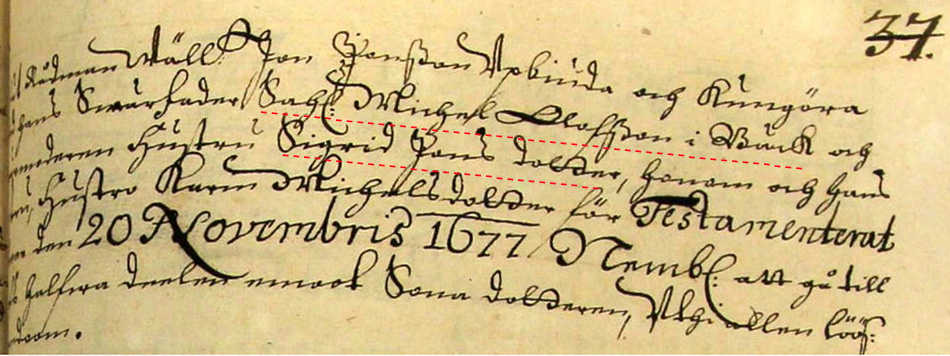 37.
Rådman Wäll: Jon Jonßon Upbiuda och Kungöra
hans Swärfader Sahl: Michel Olofßon i Bäck och
moderen Hustru Sigrid Jons dotter, honom och hans
Hustro Karin Michelsdotter för Testamenterat
den 20 Novembris 1677 Nembl: att gå till
halfwa deelen emoot Sona dotteren, Uthi allen löös:
doom.